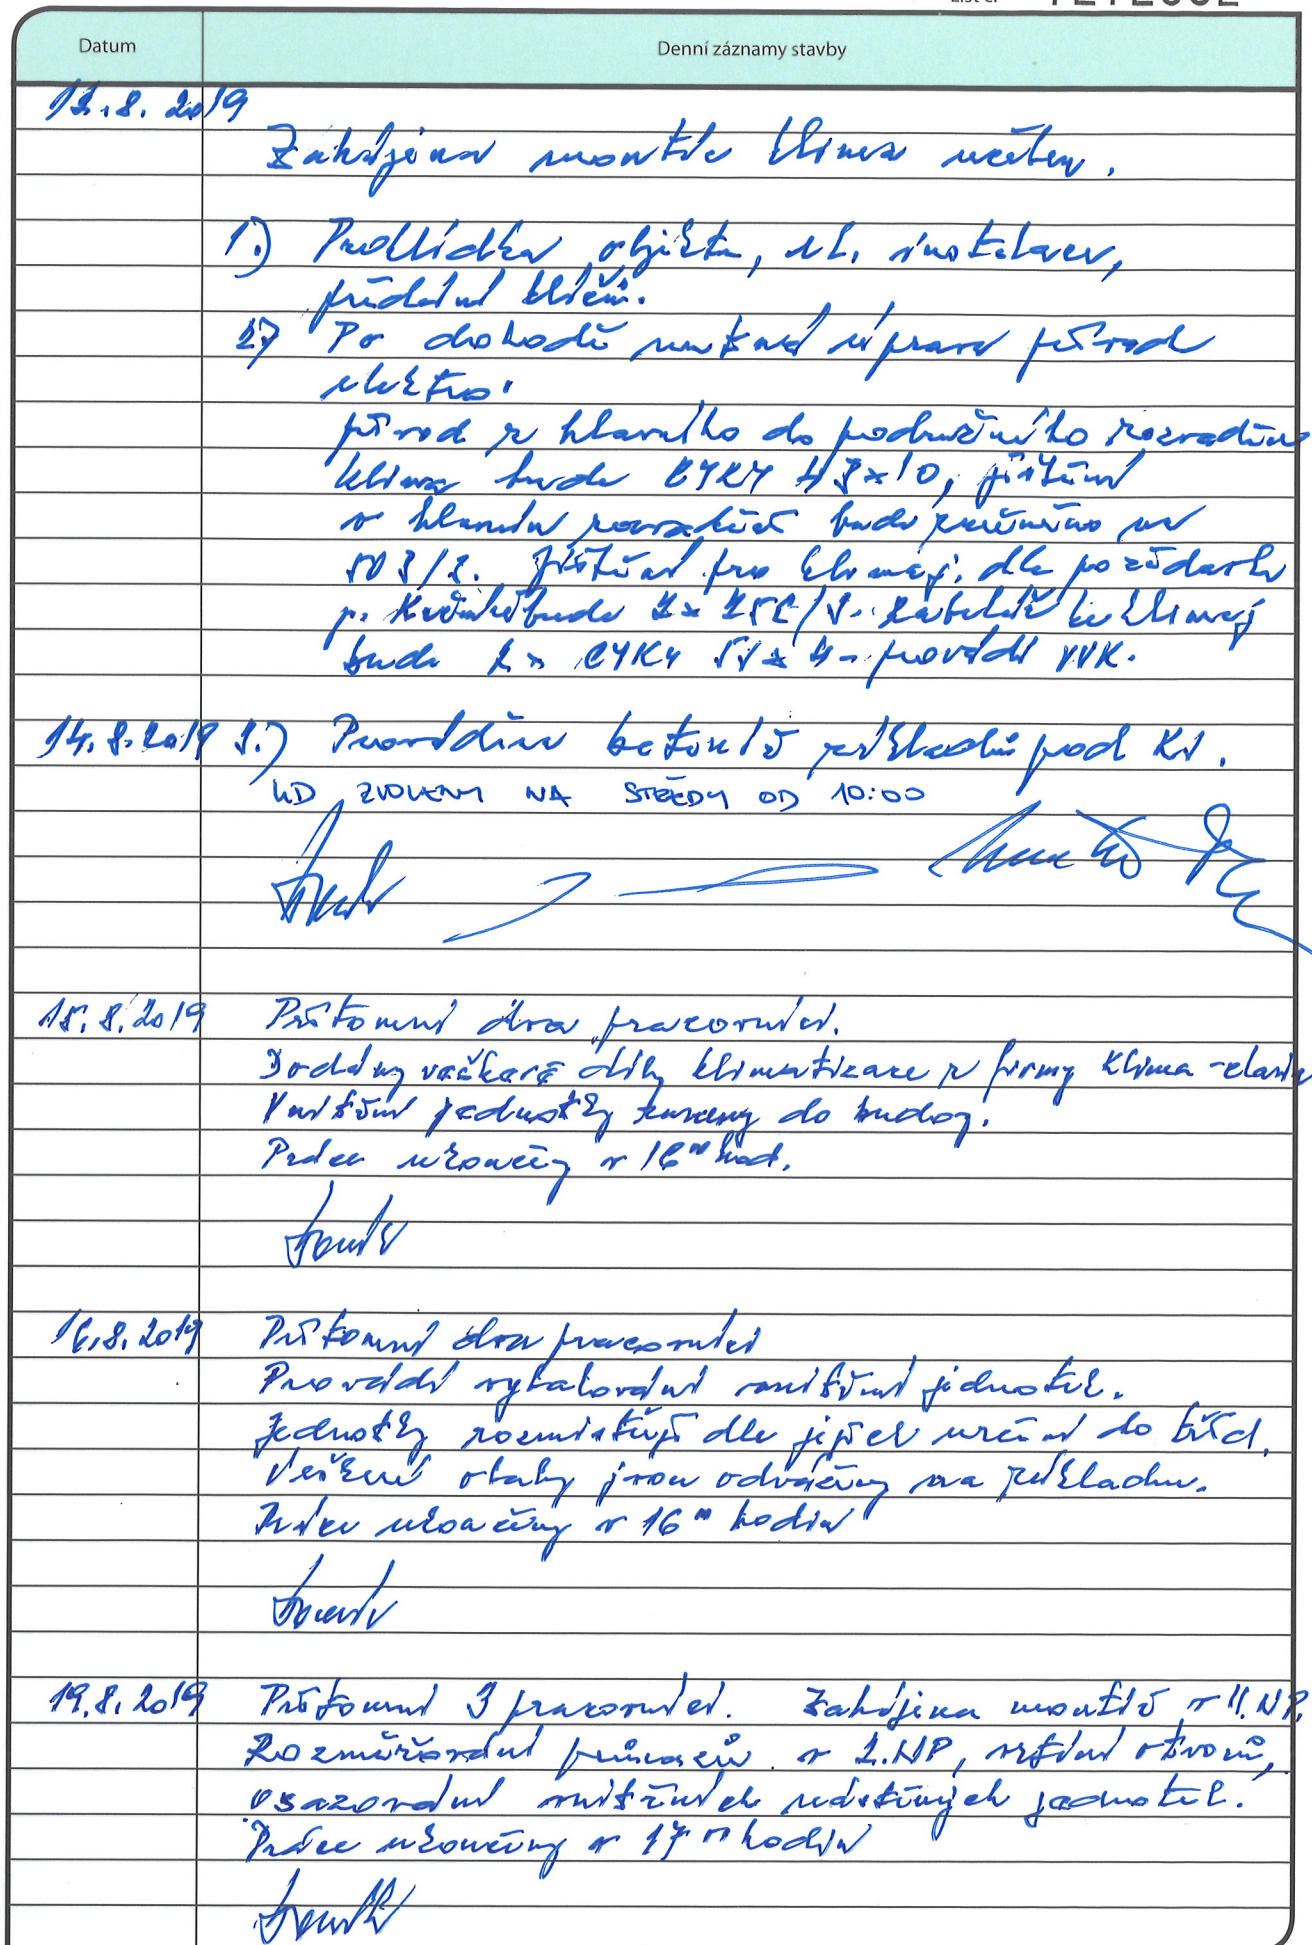 List č.
Datum Denní záznamy stavby
12.8.2019
Zahájena montáž klima učeben.
1.) Prohlídka objektu, el. instalace,
předání klíčů.
2) Po dohodě nutná úprava přívod
elektro:
přívod z hlavního do podružného rozvaděče
klima bude CYKY 4Jx10, jištění
v hlavním rozvaděči bude na
50 3/2. Jištění pro klimaj. dle požadavku
p. bude 2x 25C/3. kabeláž ke klimaj
bude 2x CYKY 5Jx4 - provádí VVK.
14.8.2019 3.) Provádíme betonáž základů pod KJ.
KD ZVOLENY NA STŘEDY OD 10:00
15.8.2019 Přítomni dva pracovníci.
Dodány veškeré díly klimatizace z firmy Klima-classic
Vnitřní jednotky do budov.
Práce ukončeny v 16⁰⁰ hod.
16.8.2019 Přítomni dva pracovníci
Provádí vybalování vnitřní jednotek.
Jednotky rozmisťují dle jejich určení do tříd.
Veškeré obaly jsou odváženy na základnu.
Práce ukončeny v 16⁰⁰ hodin
19.8.2019 Přítomni 3 pracovníci. Zahájena montáž v II.NP.
Rozměřování průrazů v 2.NP, vrtání otvorů,
osazování vnitřních nástěnných jednotek.
Práce ukončeny v 17⁰⁰ hodin